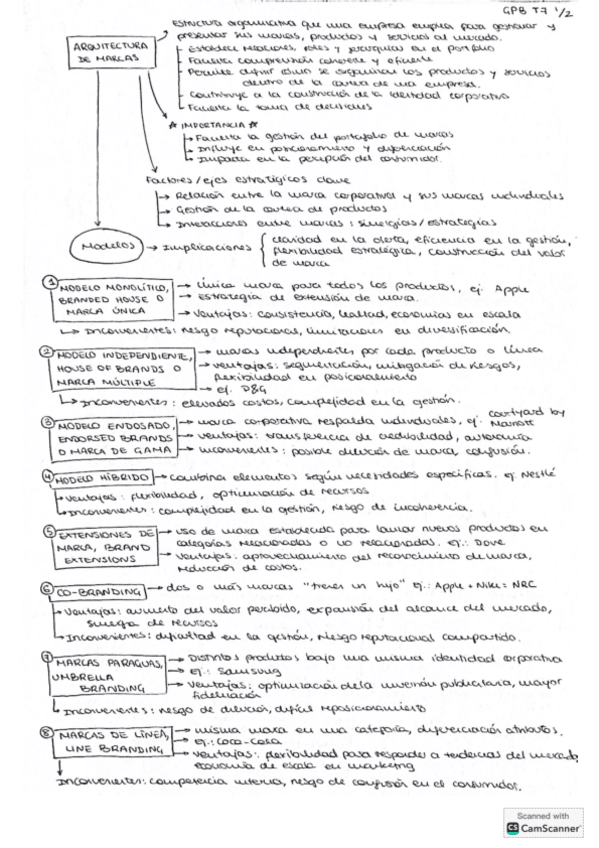 GPB T7 1/2
ARQUITECTURA DE MARCAS
Estructura organizativa que una empresa emplea para gestionar y
presentar sus marcas, productos y servicios al mercado.
Establece relaciones, roles y jerarquías en el portfolio
Facilita comprensión coherente y eficiente
Permite definir cómo se organizan los productos y servicios
dentro de la cartera de una empresa.
Contribuye a la construcción de la identidad corporativa
Facilita la toma de decisiones
★ IMPORTANCIA ★
Facilita la gestión del portafolio de marcas
Influye en posicionamiento y diferenciación
Impacta en la percepción del consumidor.
Factores/ejes estratégicos clave
Relación entre la marca corporativa y sus marcas individuales
Gestión de la cartera de productos
Interacciones entre marcas: sinergias/estrategias
Modelos → Implicaciones { claridad en la oferta, eficiencia en la gestión,
flexibilidad estratégica, construcción del valor
de marca
① MODELO MONOLÍTICO, BRANDED HOUSE O MARCA ÚNICA
única marca para todos los productos, ej. Apple
estrategia de extensión de marca.
Ventajas: consistencia, lealtad, economías en escala
Inconvenientes: riesgo reputacional, limitaciones en diversificación.
② MODELO INDEPENDIENTE, HOUSE OF BRANDS O MARCA MÚLTIPLE
marcas independientes por cada producto o línea
ventajas: segmentación, mitigación de riesgos,
flexibilidad en posicionamiento
ej. P&G
Inconvenientes: elevados costos, complejidad en la gestión.
③ MODELO ENDOSADO, ENDORSED BRANDS O MARCA DE GAMA
marca corporativa respalda individuales, ej. Courtyard by
Marriott
ventajas: transferencia de credibilidad, autonomía
inconvenientes: posible dilución de marca, confusión.
④ MODELO HÍBRIDO → combina elementos según necesidades específicas. ej. Nestlé
Ventajas: flexibilidad, optimización de recursos
Inconvenientes: complejidad en la gestión, riesgo de incoherencia.
⑤ EXTENSIONES DE MARCA, BRAND EXTENSIONS
uso de marca establecida para lanzar nuevos productos en
categorías relacionadas o no relacionadas. ej.: Dove
Ventajas: aprovechamiento del reconocimiento de marca,
reducción de costos.
⑥ CO-BRANDING → dos o más marcas "tienen un hijo" ej.: Apple + Nike = NRC
Ventajas: aumento del valor percibido, expansión del alcance del mercado,
sinergia de recursos
Inconvenientes: dificultad en la gestión, riesgo reputacional compartido.
⑦ MARCAS PARAGUAS, UMBRELLA BRANDING
Distintos productos bajo una misma identidad corporativa
ej.: Samsung
ventajas: optimización de la inversión publicitaria, mayor
fidelización
Inconvenientes: riesgo de dilución, difícil reposicionamiento
⑧ MARCAS DE LÍNEA, LINE BRANDING
misma marca en una categoría, diferenciación atributos.
ej.: Coca-Cola
ventajas: flexibilidad para responder a tendencias del mercado,
economía de escala en marketing
Inconvenientes: competencia interna, riesgo de confusión en el consumidor.
Scanned with
CS CamScanner